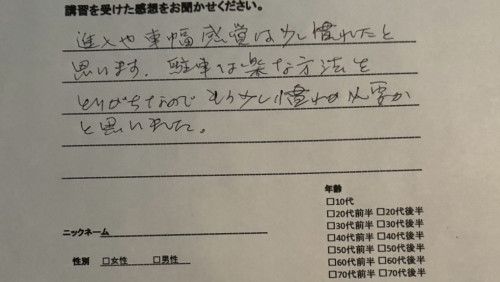 講習を受けた感想をお聞かせください。
進入や車幅感覚は少し慣れたと
思います。駐車は楽な方法を
とりがちなので もう少し慣れが必要か
と思いました。
年齢
□10代
□20代前半 □20代後半
□30代前半 □30代後半
□40代前半 □40代後半
□50代前半 □50代後半
□60代前半 □60代後半
□70代前半 □70代後半
ニックネーム
性別 □女性 □男性